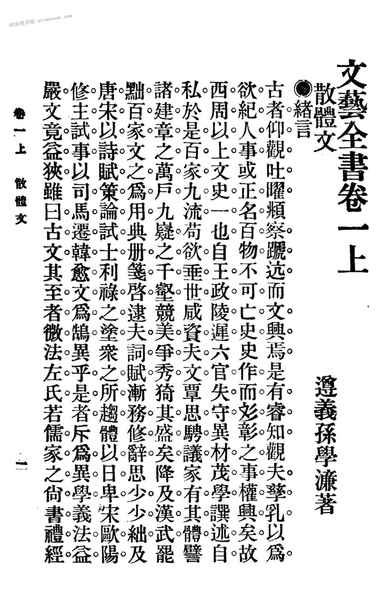 文藝全書卷一上
遵義孫學濂著
散體文
緒言
古者仰觀吐曜頫察躔迒而文興焉是有睿知觀夫孳乳以爲
欲紀人事或正名百物不可亡史史作而彣彰之事權興矣故
西周以上文史一也自王政陵遲六官失守異材茂學譔述自
私於是百家九流苟欲垂世咸資夫文覃思騁議家有其體譬
諸建章之萬戶九嶷之千壑競美爭秀猗其盛矣降及漢武罷
黜百家文之爲用典册箋啓逮夫詞賦漸務修辭思少少絀及
唐宋以詩賦策論試士利祿之塗衆之所趨體以日卑宋歐陽
修主試事以司馬遷韓愈文爲鵠異乎是者斥爲異學義法益
嚴文竟益狹雖曰古文其至者微法左氏若儒家之尙書禮經
卷一上 散體文
一